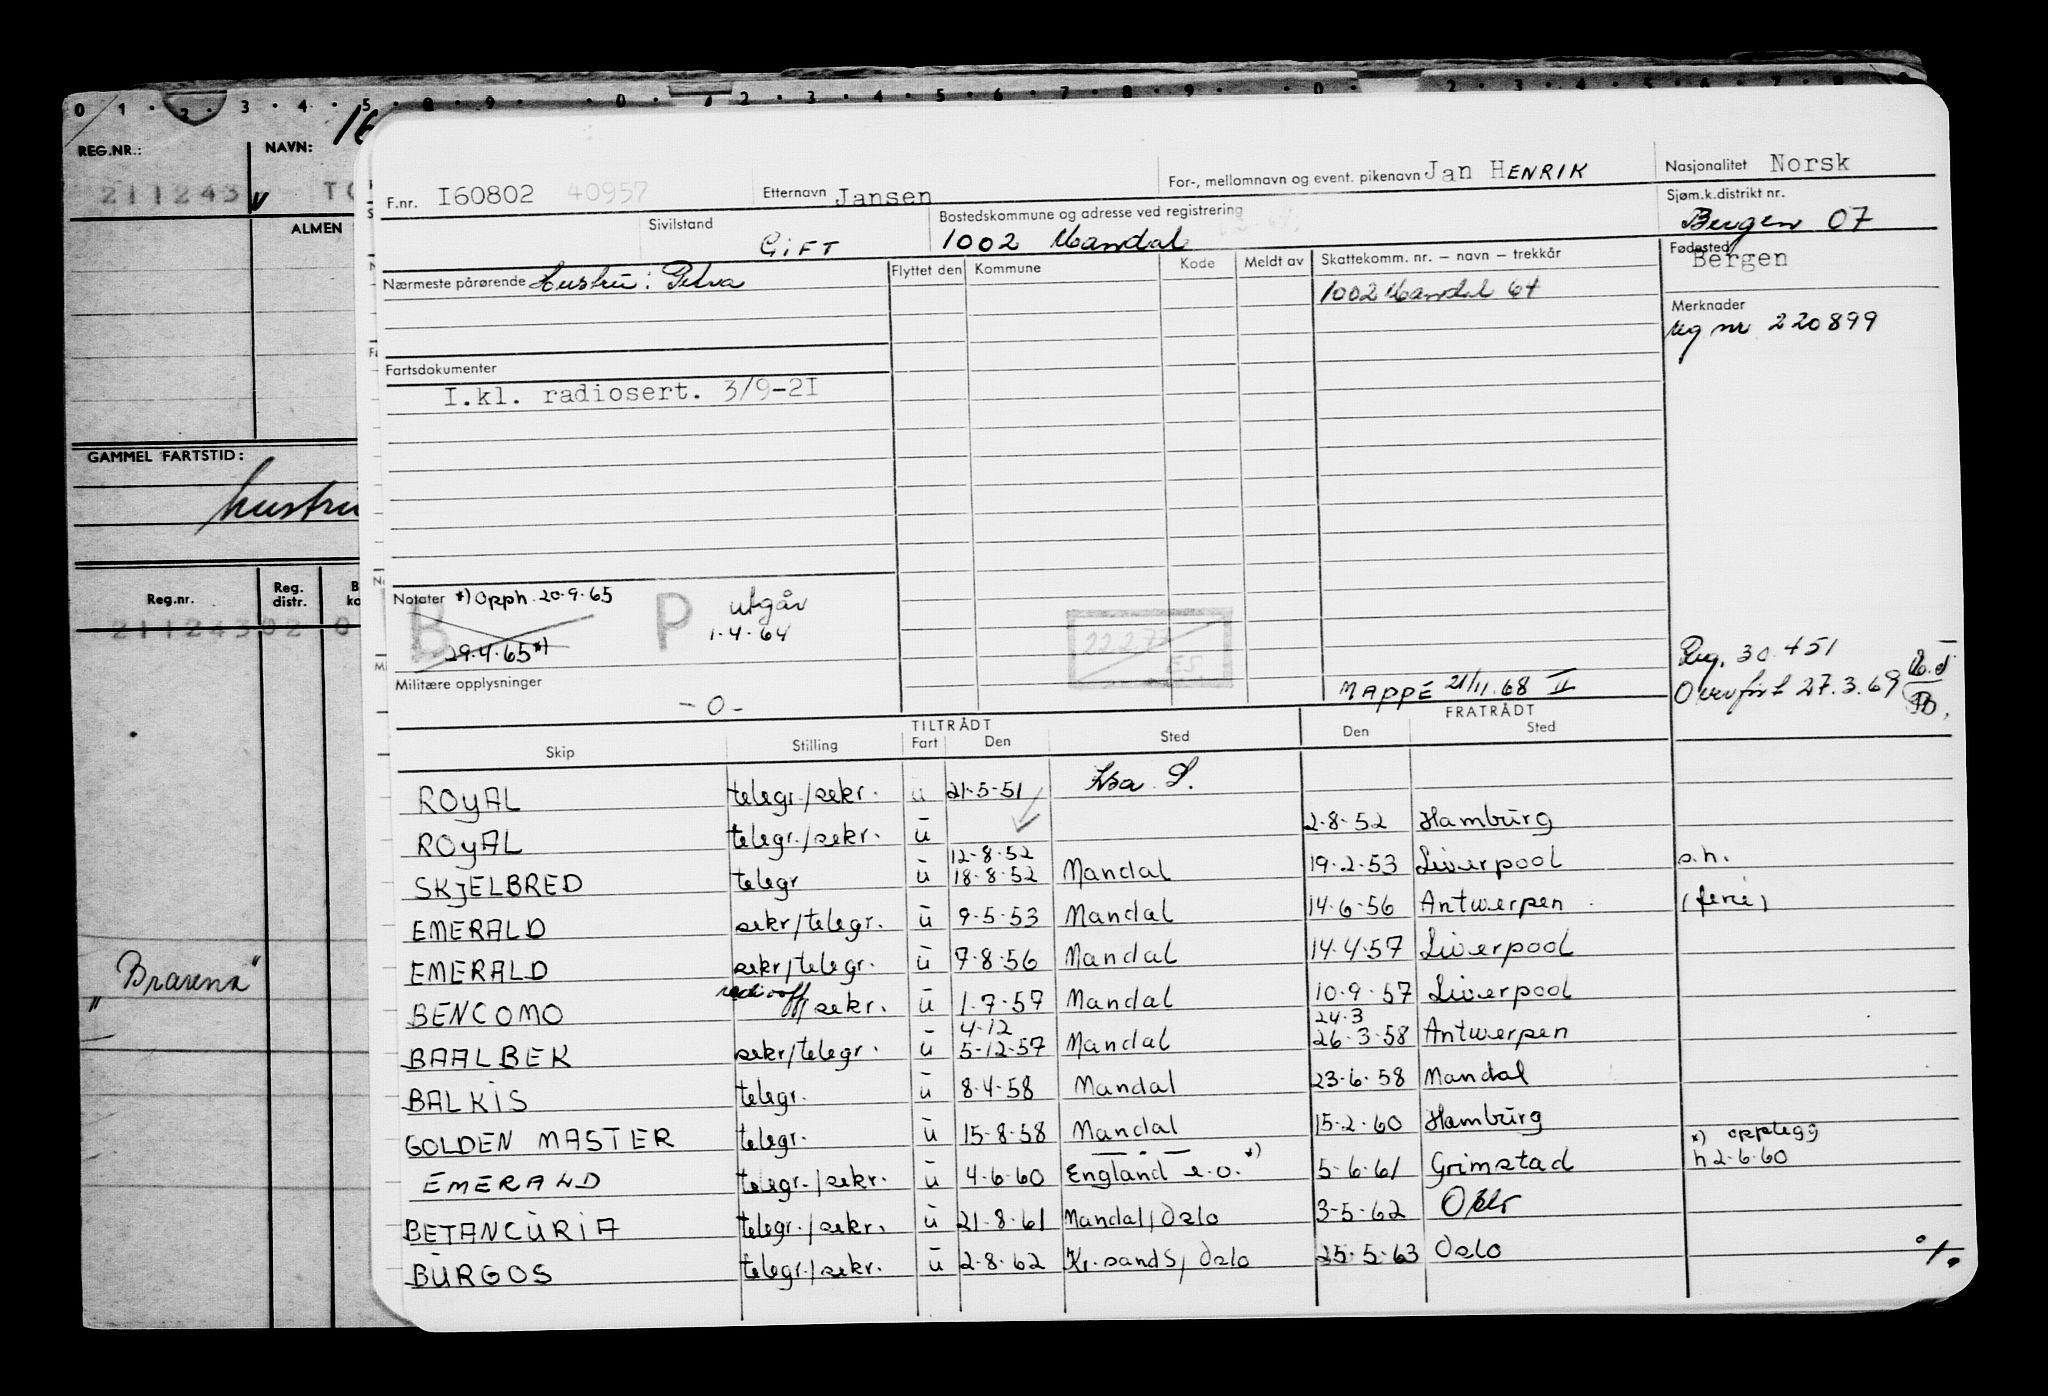 REG.NR.:
NAVN:
211243
ALMEN
GAMMEL FARTSTID:
hustru
Reg.nr.
Reg. distr.
211243 02 0
"Bravena"
F.nr. I60802 40957
Etternavn Jansen
For-, mellomnavn og event. pikenavn Jan HENRIK
Nasjonalitet Norsk
Sivilstand GIFT
Bostedskommune og adresse ved registrering
1002 Mandal
Sjøm.k.distrikt nr.
Bergen 07
Nærmeste pårørende Hustru: Petra
Flyttet den Kommune Kode Meldt av Skattekomm. nr. — navn — trekkår
1002 Mandal 64
Fødested
Bergen
Merknader
reg nr 220899
Fartsdokumenter
I.kl. radiosert. 3/9-2I
Notater *) Opph. 20.9.65
B 29.4.65 *)
P utgår
1.4.64
22.2.77
ES
Militære opplysninger
-0-
MAPPE 21/11.68 II
Reg. 30.451
Overført 27.3.69
TILTRÅDT FRATRÅDT
Skip Stilling Fart Den Sted Den Sted
ROYAL telegr./sekr. u 21.5.51
ROYAL telegr./sekr. u 2.8.52 Hamburg
12.8.52
SKJELBRED telegr u 18.8.52 Mandal 19.2.53 Liverpool s.h.
EMERALD sekr/telegr. u 9.5.53 Mandal 14.6.56 Antwerpen (ferie)
EMERALD sekr/telegr. u 7.8.56 Mandal 14.4.57 Liverpool
BENCOMO radiooff/sekr. u 1.7.57 Mandal 10.9.57 Liverpool
4.12 24.3
BAALBEK sekr/telegr. u 5.12.57 Mandal 26.3.58 Antwerpen
BALKIS telegr. u 8.4.58 Mandal 23.6.58 Mandal
GOLDEN MASTER telegr. u 15.8.58 Mandal 15.2.60 Hamburg
*) opplegg
EMERALD telegr./sekr. u 4.6.60 England e.o. *) 5.6.61 Grimstad h 2.6.60
BETANCURIA telegr./sekr. u 21.8.61 Mandal/Oslo 3.5.62 Oslo
BURGOS telegr./sekr. u 2.8.62 Kr.sand S/Oslo 25.5.63 Oslo ./.